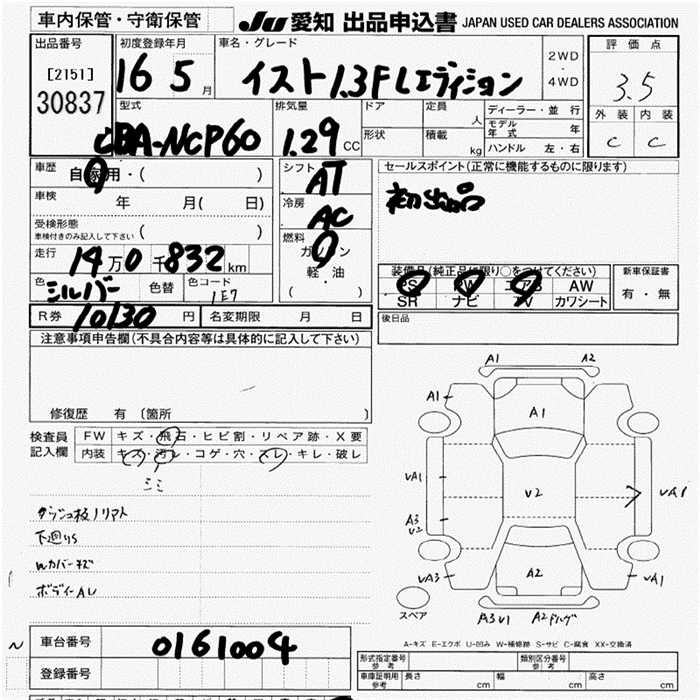 車内保管・守衛保管
JU 愛知 出品申込書 JAPAN USED CAR DEALERS ASSOCIATION
出品番号 初度登録年月 車名・グレード 評価点
[2151] 16 5 月 イスト 1.3F Lエディション 2WD・4WD 3.5
30837
型式 排気量 ドア 定員 人 ディーラー・並 行 外装 内装
CBA-NCP60 1.29 CC 形状 積載 kg モデル年式 年 C C
ハンドル 左・右
車歴 自家用・( ) シフト AT セールスポイント(正常に機能するものに限ります)
車検 年 月( 日) 冷房 AC 初出品
受検形態 車検付きのみ記入して下さい ( )
燃料 ガソリン
走行 14万0千832km 軽・油 ( )
装備品(純正品に限り○をつけてください) 新車保証書
PS PW エアB AW 有・無
SR ナビ TV カワシート
色 シルバー 色替 色コード 1E7
R券 10130 円 名変期限 月 日 後日品
注意事項申告欄(不具合内容等は具体的に記入して下さい)
修復歴 有 〔箇所 〕
検査員記入欄 FW キズ・飛石・ヒビ割・リペア跡・X要
内装 キズ・汚レ・コゲ・穴・スレ・キレ・破レ
シミ
下廻りS
Wカバーキズ
ボディーAU
A1 A2
A1 A1
VA1 V2 VA1
A3
V2
VA3 A2 VA1
スペア A3V1
A-キズ E-エクボ U-凹み W-補修跡 S-サビ C-腐食 XX-交換済
車台番号 0161004
登録番号
形式指定番号 参考 類別区分番号 参考
車庫証明用 参考 長さ cm 幅 cm 高さ cm